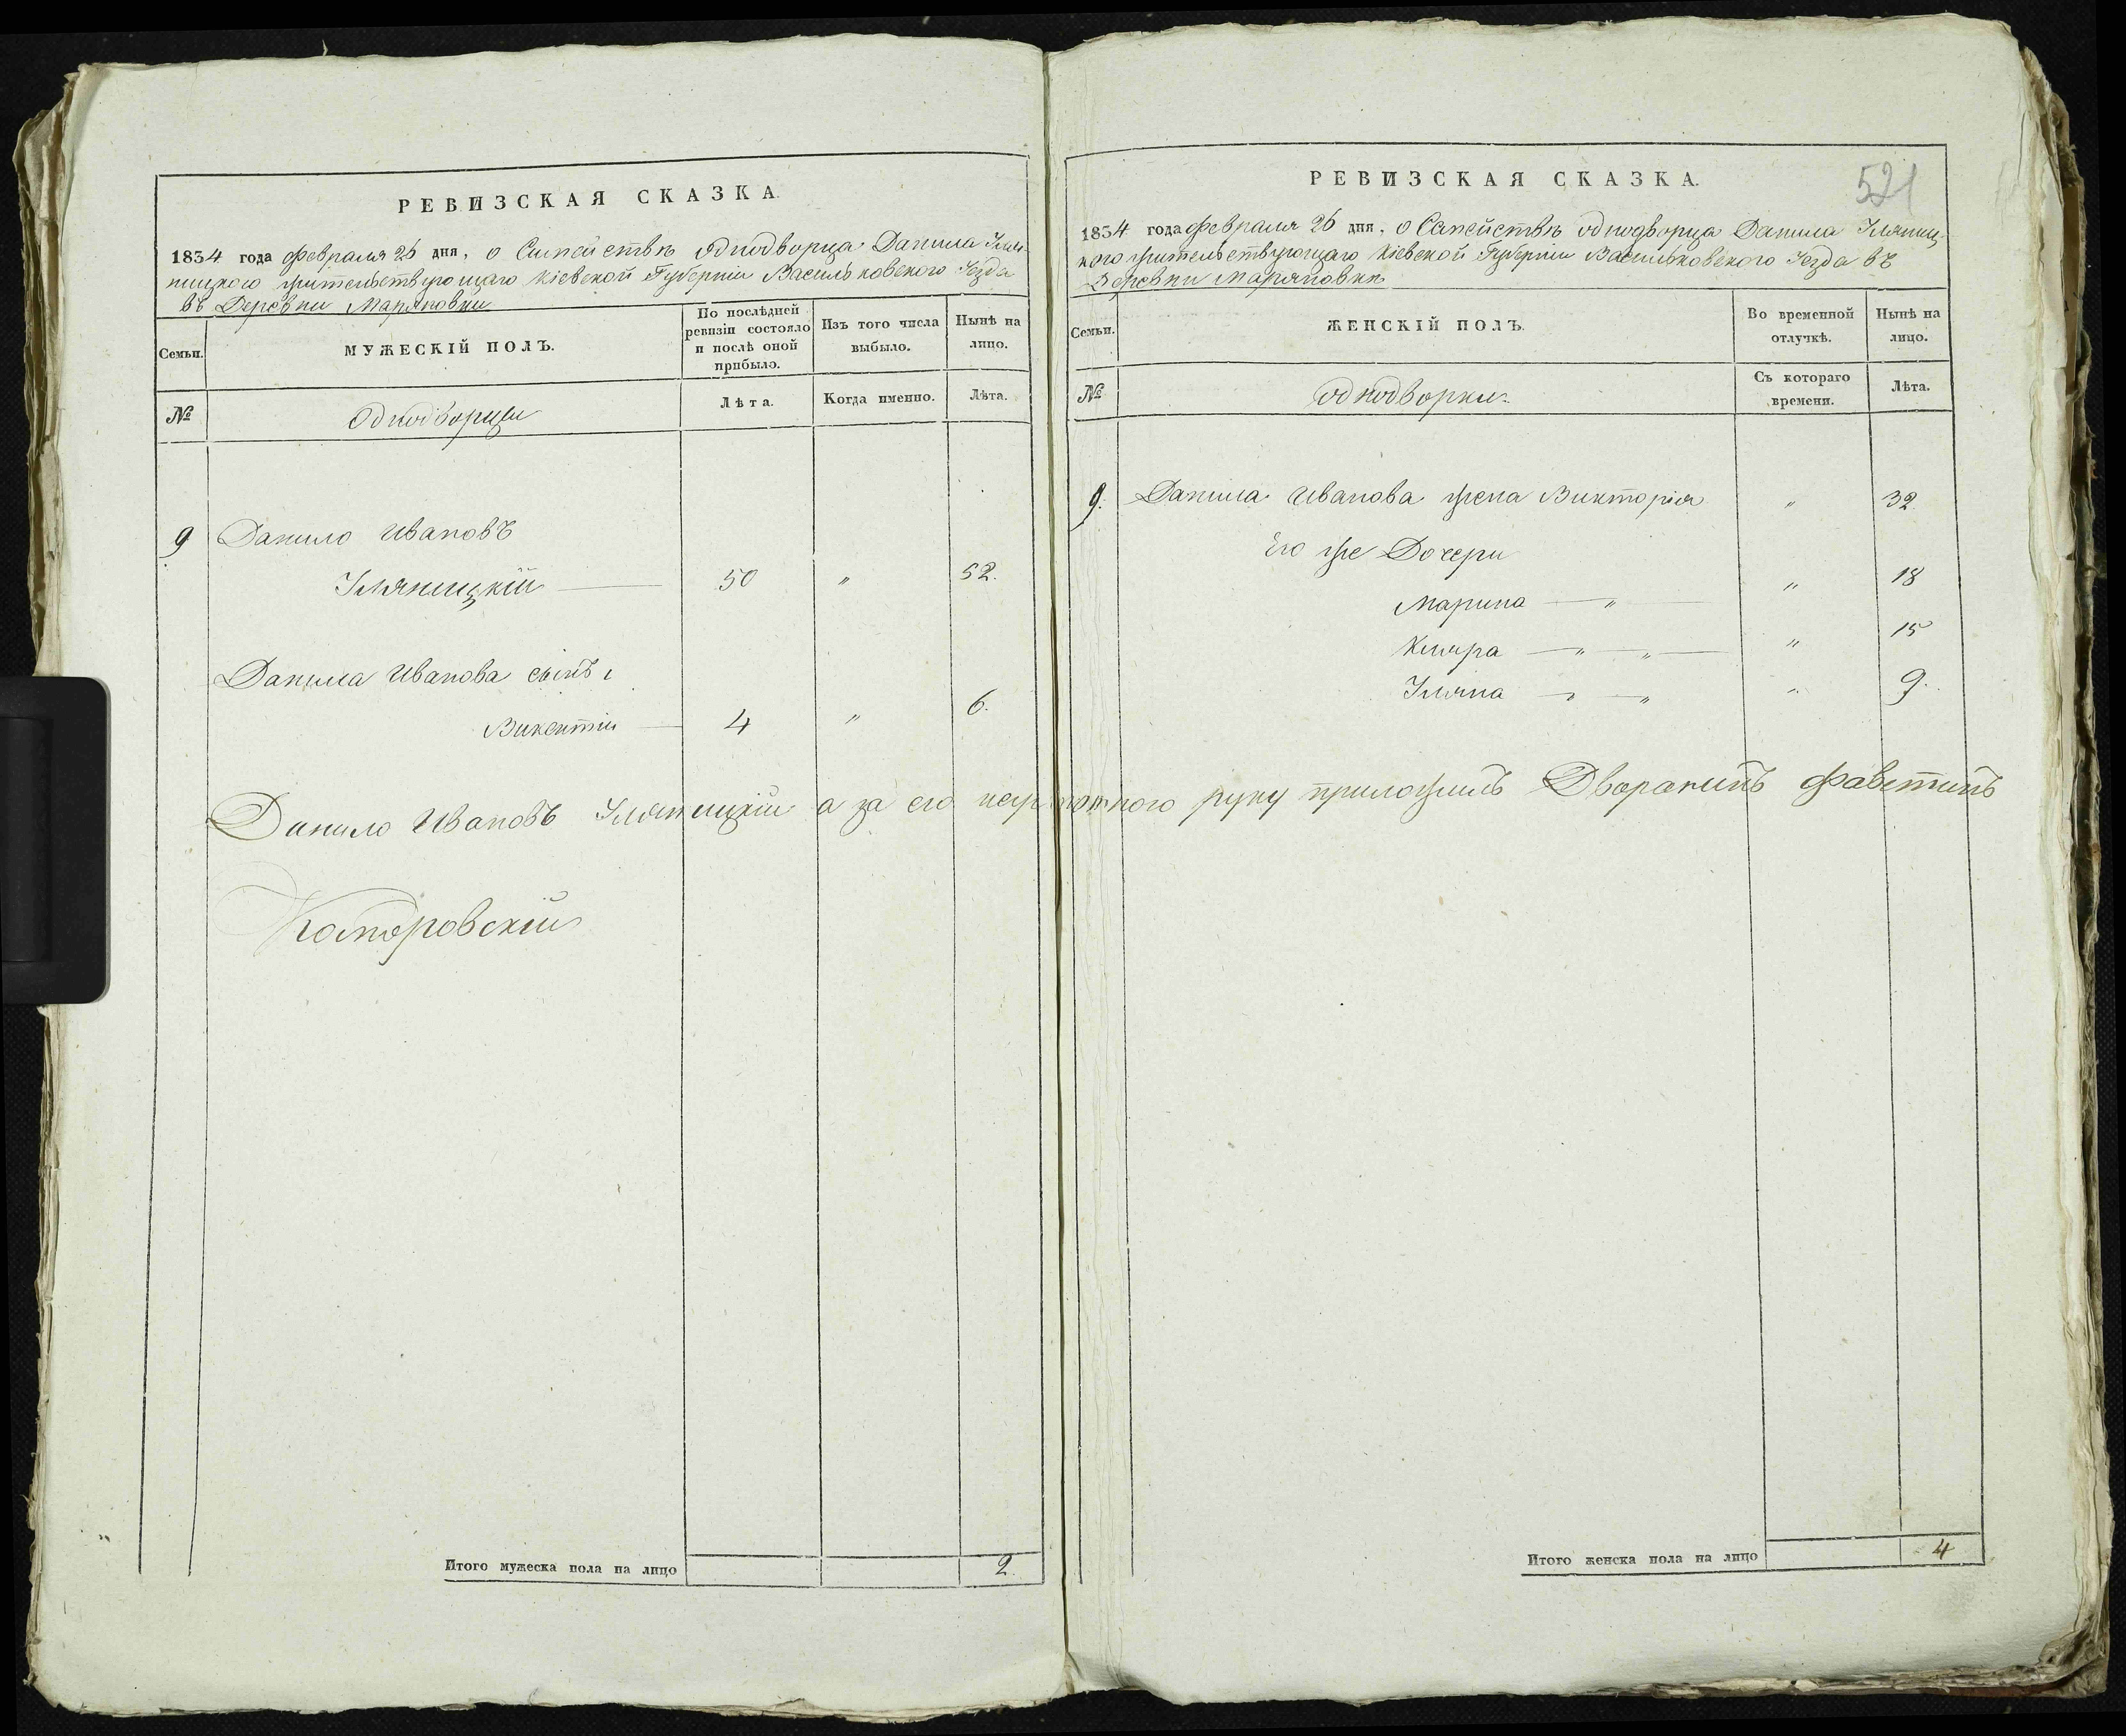 РЕВИЗСКАЯ СКАЗКА
1834 года февраля 26 дня, о Семействѣ однодворца Данила Улян-
ницкого жительствующаго Кіевской Губерніи Васильковского Уезда
въ Деревни Маряновки
Семьи.
МУЖЕСКІЙ ПОЛЪ.
По послѣдней
ревизіи состояло
и послѣ оной
прибыло.
Изъ того числа
выбыло.
Нынѣ на
лицо.
№
Однодворцы
Лѣта.
Когда именно.
Лѣта.
9 Данило Ивановъ
Уляницкій — 50 " 52.
Данила Иванова сынъ
Викентій — 4 " 6.
Данило Ивановъ Уляницкій а за его неграмотного руку приложилъ Дворянинъ Фавстинъ
Итого мужеска пола на лицо 2.
521
РЕВИЗСКАЯ СКАЗКА.
1834 года февраля 26 дня, о Семействѣ однодворца Данила Уляниц-
кого жительствующаго Кіевской Губерніи Васильковского Уезда въ
Деревни Маряновкѣ
Семьи.
ЖЕНСКІЙ ПОЛЪ.
Во временной
отлучкѣ.
Нынѣ на
лицо.
№
однодворки
Съ котораго
времени.
Лѣта.
9. Данила Иванова жена Викторія " 32
Его же Дочери
Марина — " — " 18
Кляра — " — " — " 15
Уляна — " — " " 9.
Итого женска пола на лицо 4